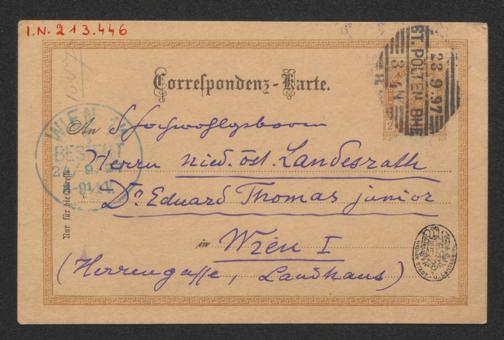 I.N. 213.446
ST. PÖLTEN
23 9 97
3-4 N
Correspondenz-Karte.
WIEN
BESTELLT
An Hochwohlgeboren
Herrn nied. öst. Landesrath
Dr Eduard Thomas junior
in Wien I
(Herrengasse, Landhaus)
Nur für die Adresse